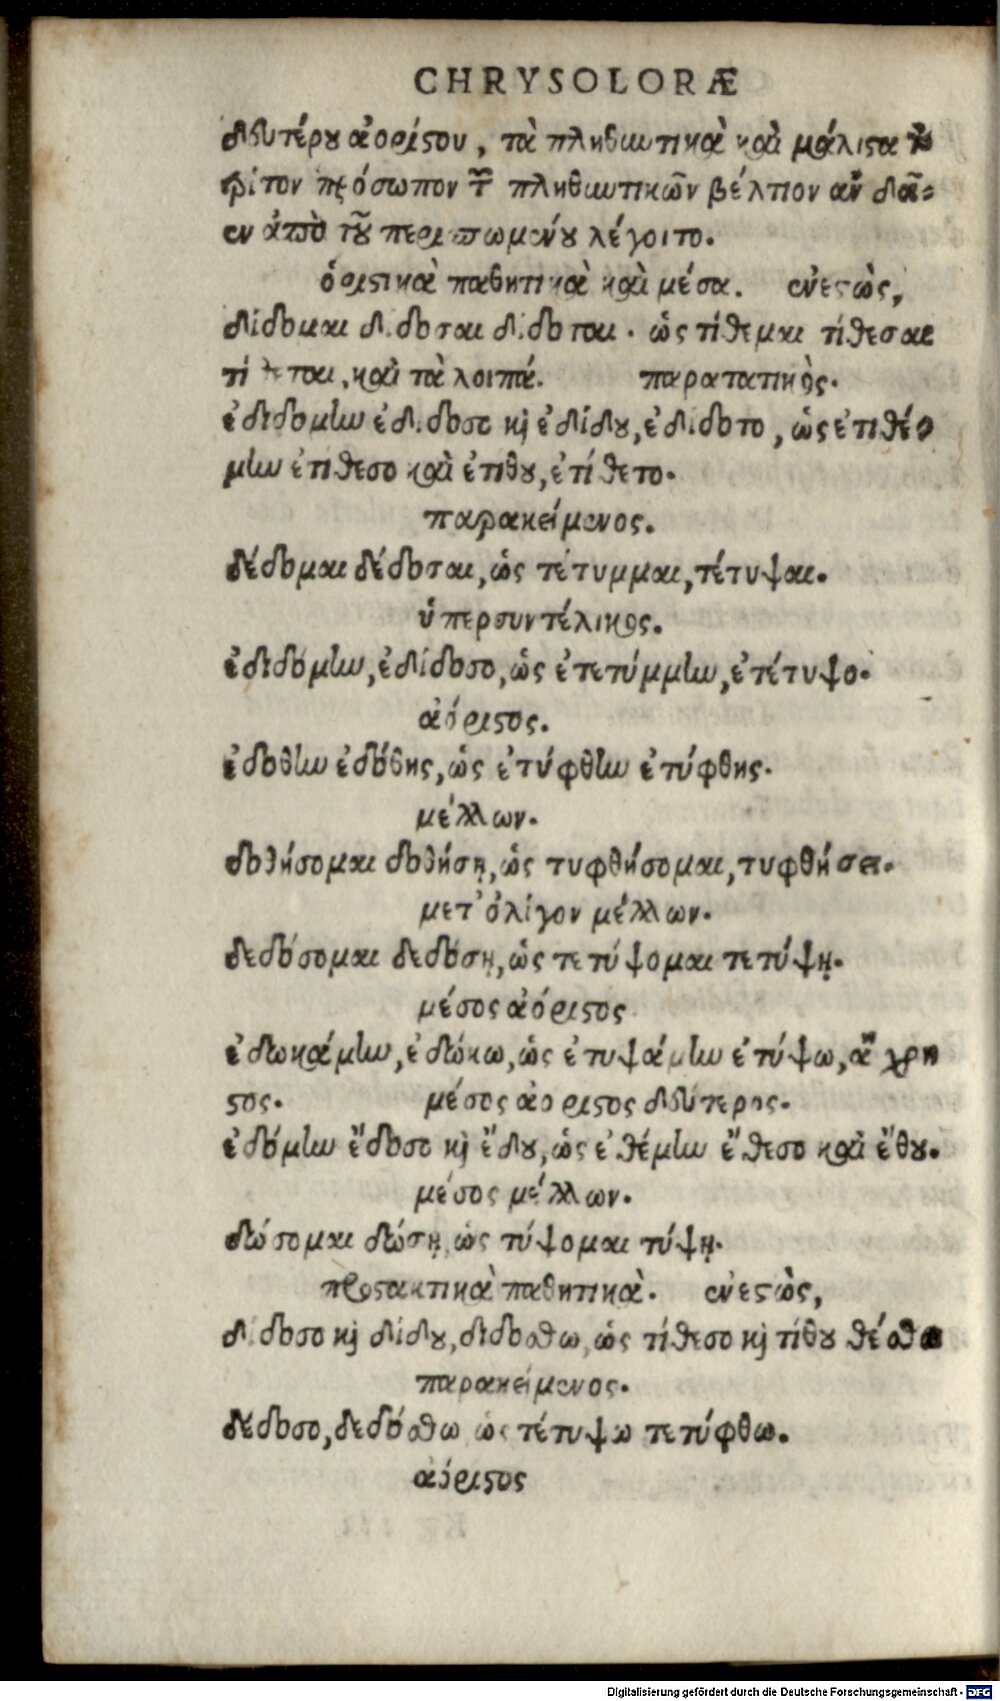 CHRYSOLORÆ
δευτέρου ἀορίστου, τὰ πληθωτικὰ καὶ μάλιστα τὸ
τρίτον πρόσωπον τῶν πληθωτικῶν βέλτιον ἂν
ἀπὸ τοῦ περισπωμένου λέγοιτο.
ὁριστικὰ παθητικὰ καὶ μέσα. ἐνεστὼς,
δίδομαι δίδοσαι δίδοται. ὡς τίθεμαι τίθεσαι
τίθεται, καὶ τὰ λοιπά. παρατατικὸς.
ἐδιδόμην ἐδίδοσο καὶ ἐδίδου, ἐδίδοτο, ὡς ἐτιθέ-
μην ἐτίθεσο καὶ ἐτίθου, ἐτίθετο.
παρακείμενος.
δέδομαι δέδοσαι, ὡς τέτυμμαι, τέτυψαι.
ὑπερσυντέλικος.
ἐδιδόμην, ἐδίδοσο, ὡς ἐτετύμμην, ἐτέτυψο.
ἀόριστος.
ἐδόθην ἐδόθης, ὡς ἐτύφθην ἐτύφθης.
μέλλων.
δοθήσομαι δοθήσῃ, ὡς τυφθήσομαι, τυφθήσει.
μετ' ὀλίγον μέλλων.
δεδόσομαι δεδόσῃ, ὡς τετύψομαι τετύψῃ.
μέσος ἀόριστος
ἐδωκάμην, ἐδώκω, ὡς ἐτυψάμην ἐτύψω, ἄχρη
στος. μέσος ἀόριστος δεύτερος.
ἐδόμην ἔδοσο καὶ ἔδου, ὡς ἐθέμην ἔθεσο καὶ ἔθου.
μέσος μέλλων.
δώσομαι δώσῃ, ὡς τύψομαι τύψῃ.
προστακτικὰ παθητικὰ. ἐνεστὼς,
δίδοσο καὶ δίδου, διδόσθω, ὡς τίθεσο καὶ τίθου θέσθω
παρακείμενος.
δέδοσο, δεδόσθω ὡς τέτυψο τετύφθω.
ἀόριστος
Digitalisierung gefördert durch die Deutsche Forschungsgemeinschaft - DFG